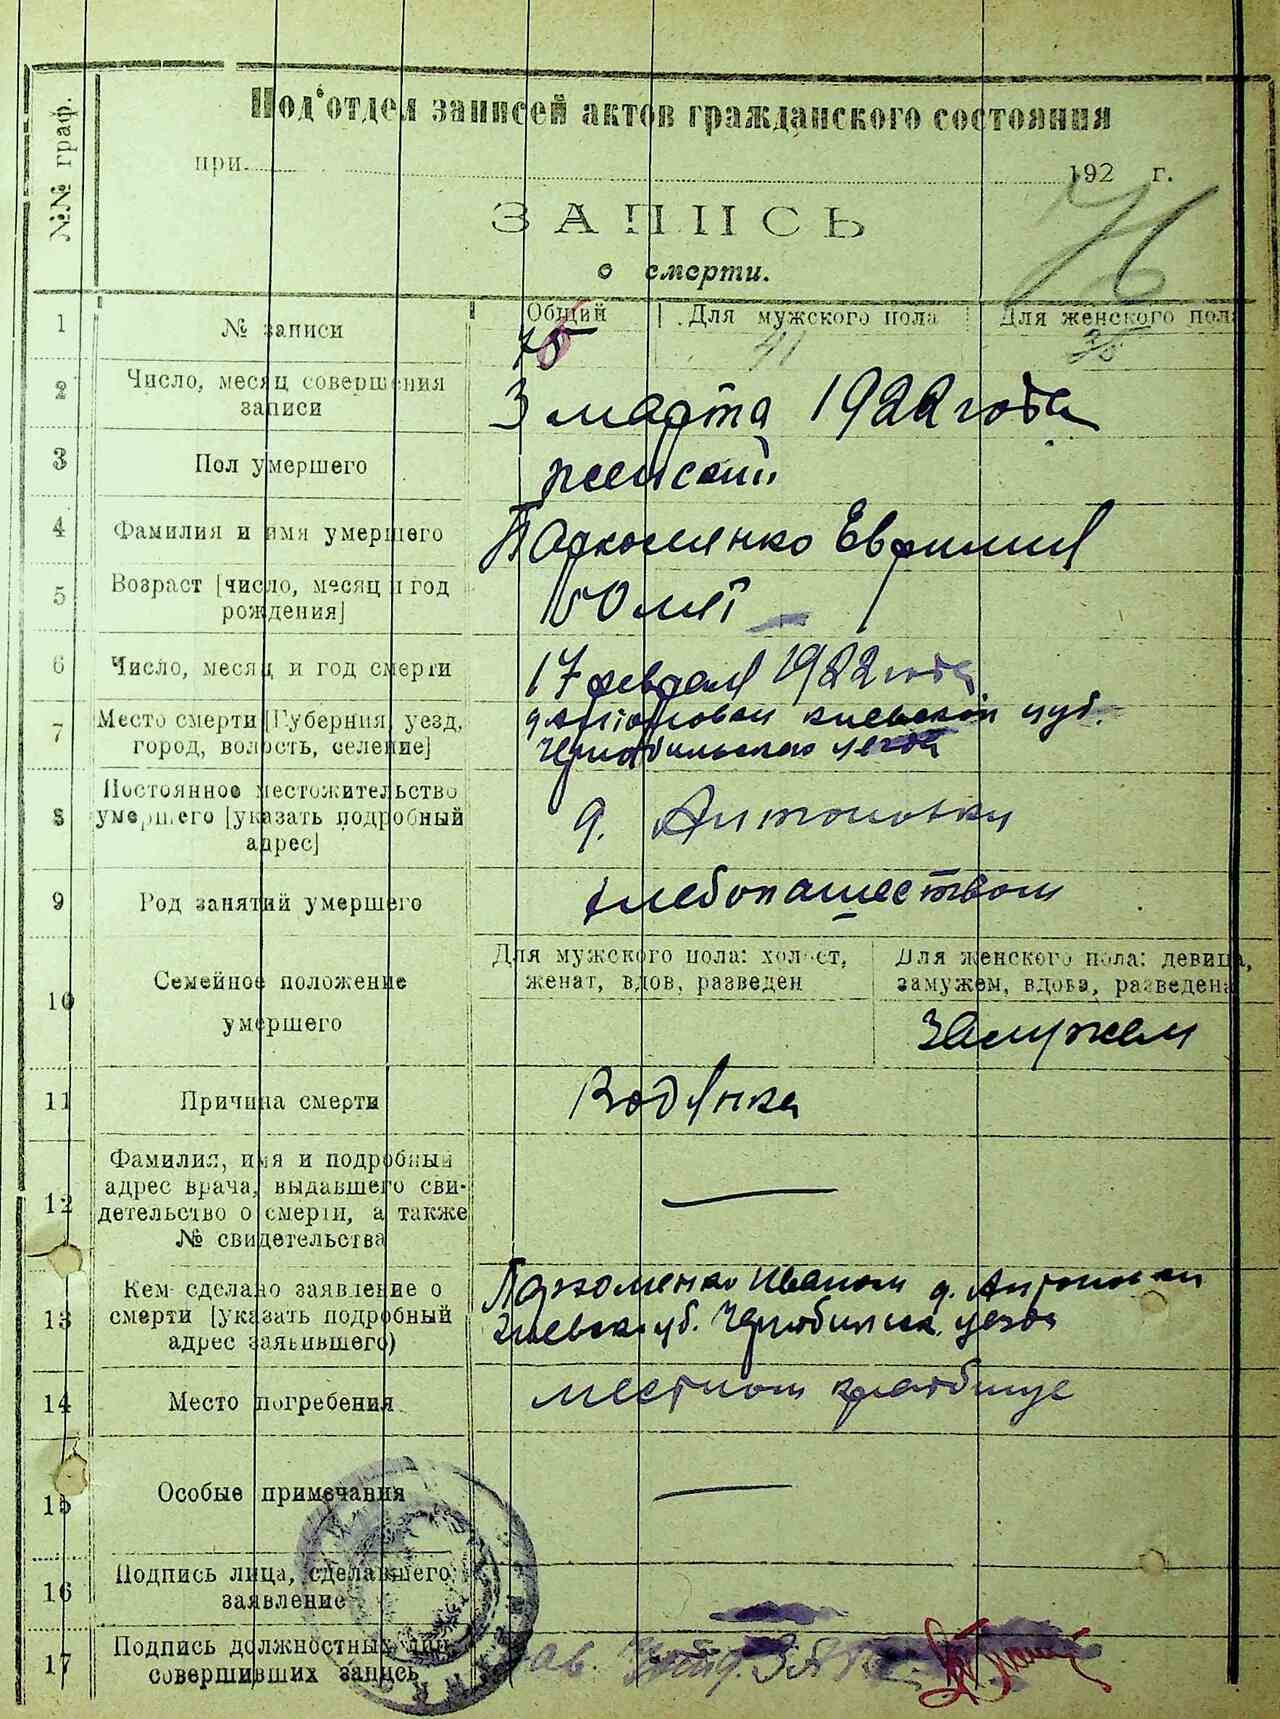 Под'отдел записей актов гражданского состояния
при 192 г.
ЗАПИСЬ
о смерти.
№№ граф.
1 № записи Общий Для мужского пола Для женского пола
41 35
2 Число, месяц совершения
записи
3 марта 1922 года
3 Пол умершего
женский
4 Фамилия и имя умершего
Пархоменко Евфимия
5 Возраст [число, месяц и год
рождения]
50 лет
6 Число, месяц и год смерти
17 февраля 1922 года
7 Место смерти [Губерния, уезд,
город, волость, селение]
д. Антоновка киевской губ.
Чернобыльского уезда
8 Постоянное местожительство
умершего [указать подробный
адрес]
д. Антоновки
9 Род занятий умершего
хлебопашеством
10 Семейное положение
умершего
Для мужского пола: холост,
женат, вдов, разведен
Для женского пола: девица,
замужем, вдова, разведена
Замужем
11 Причина смерти
Водянка
12 Фамилия, имя и подробный
адрес врача, выдавшего сви-
детельство о смерти, а также
№ свидетельства
13 Кем сделано заявление о
смерти [указать подробный
адрес заявившего)
Пархоменко Иваном д. Антоновки
Киевск. губ. Чернобыльск. уезда
14 Место погребения
местном кладбище
15 Особые примечания
16 Подпись лица, сделавшего
заявление
17 Подпись должностных лиц,
совершивших запись
Зав.